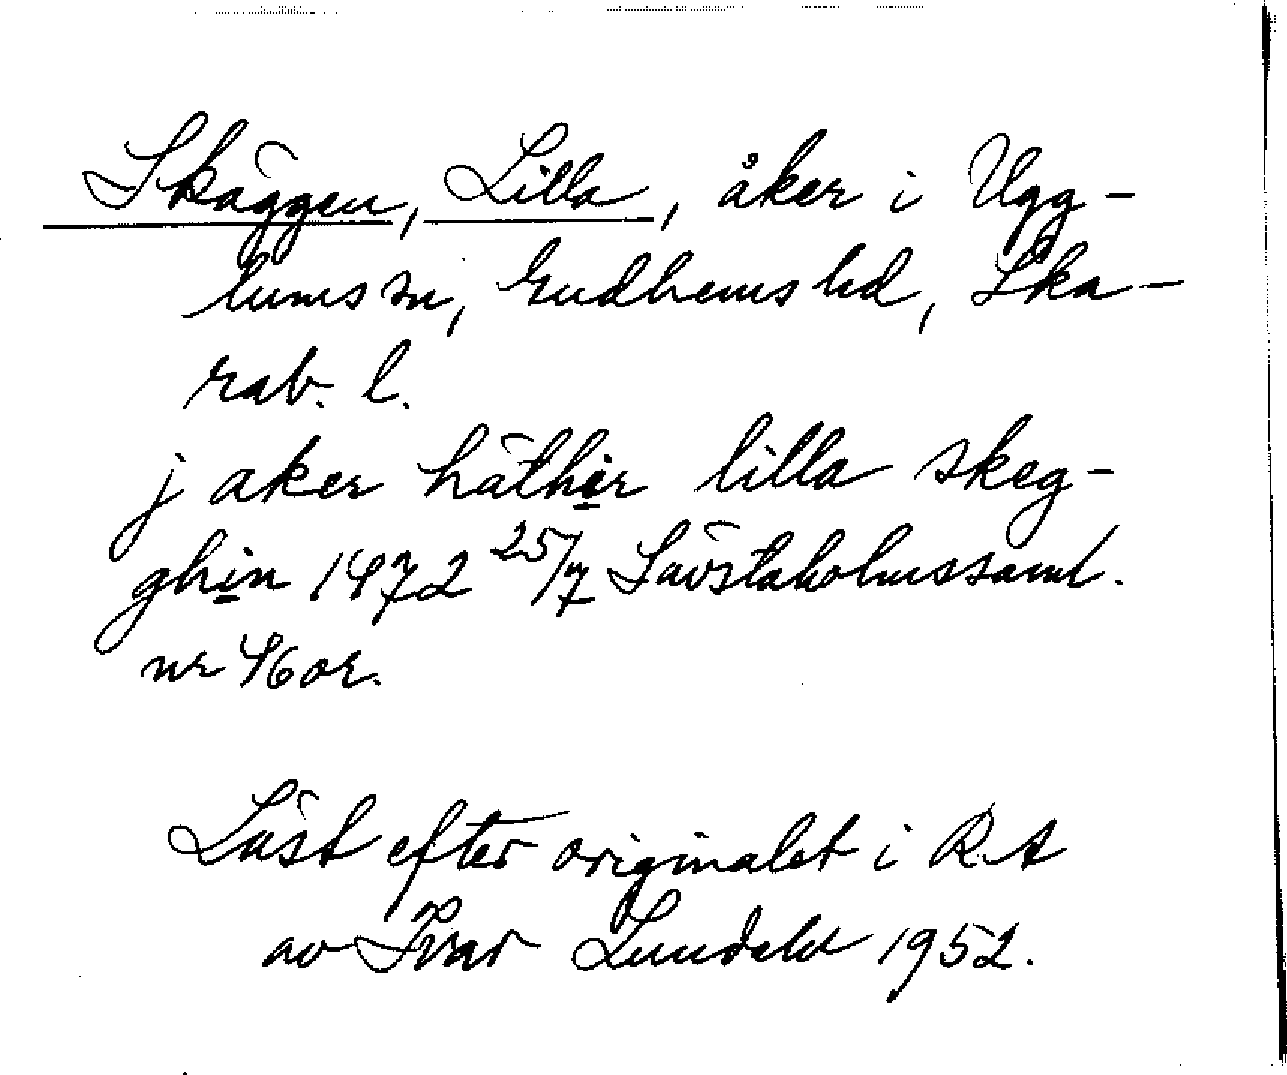 Skäggen, Lilla, åker i Ugg-
lums sn, Gudhems hd, Ska-
rab. l.
j aker häthir lilla skeg-
ghin 1472 25/7 Sävstaholmssaml.
nr 46 or.
Läst efter originalet i R.A
av Ivar Lundahl 1952.